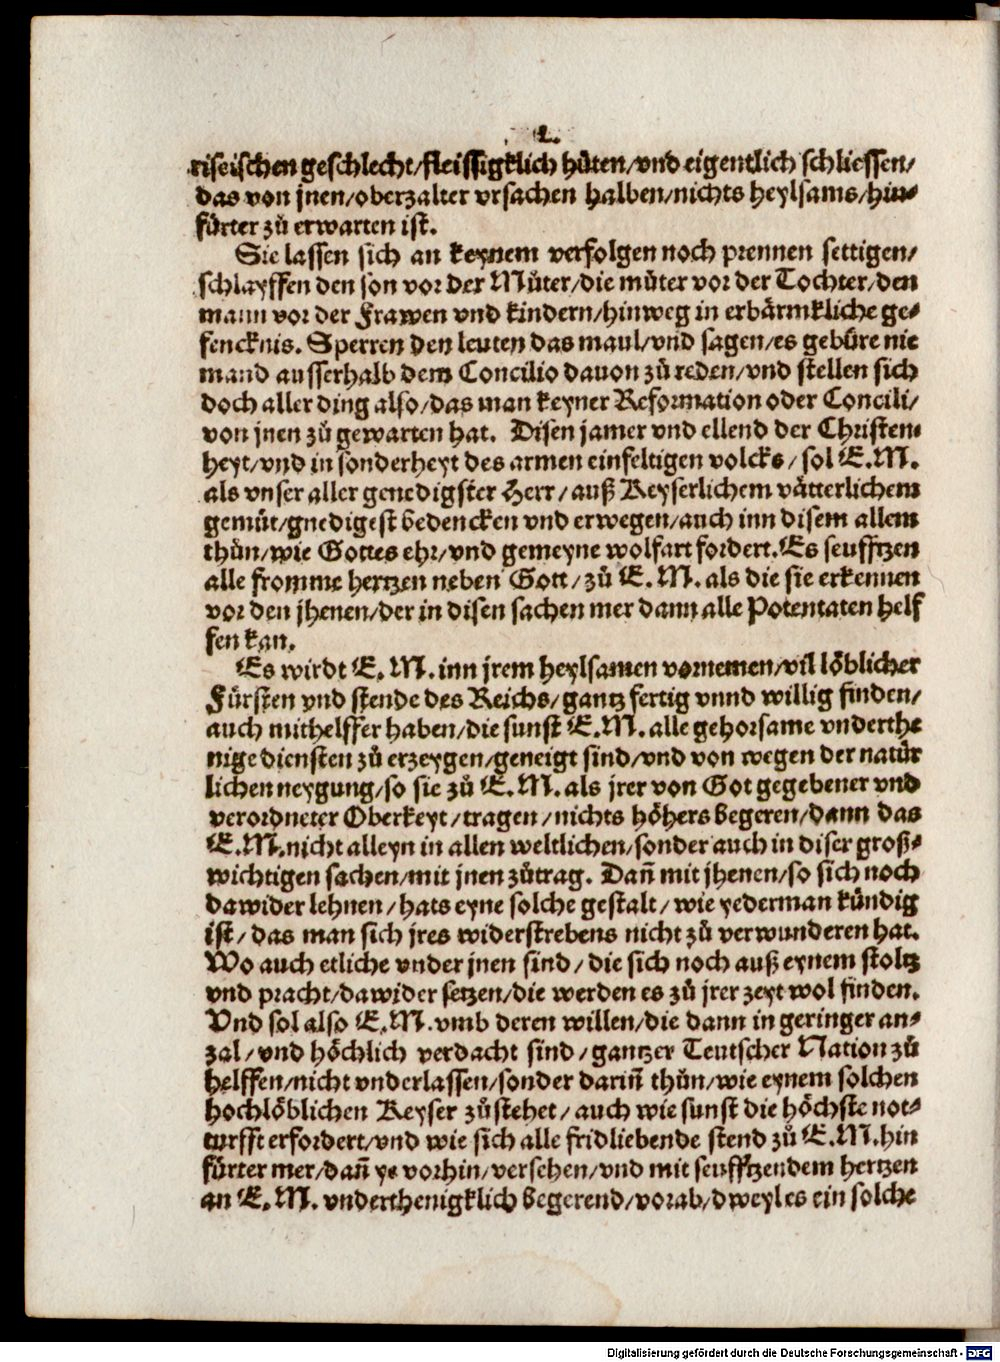 L.
riseischen geschlecht/fleissigklich hůten/vnd eigentlich schliessen/
das von jnen/oberzalter vrsachen halben/nichts heylsams/hin⸗
fürter zů erwarten ist.
Sie lassen sich an keynem verfolgen noch prennen settigen/
schlayffen den son vor der Můter/die můter vor der Tochter/den
mann vor der Frawen vnd kindern/hinweg in erbärmkliche ge⸗
fencknis. Sperren den leuten das maul/vnd sagen/es gebüre nie
mand ausserhalb dem Concilio dauon zů reden/vnd stellen sich
doch aller ding also/das man keyner Reformation oder Concili/
von jnen zů gewarten hat. Disen jamer vnd ellend der Christen⸗
heyt/vnd in sonderheyt des armen einfeltigen volcks/sol E.M.
als vnser aller genedigster Herr/auß Keyserlichem vätterlichem
gemüt/gnedigest bedencken vnd erwegen/auch inn disem allem
thůn/wie Gottes ehr/vnd gemeyne wolfart fordert. Es seufftzen
alle fromme hertzen neben Gott/zů E.M. als die sie erkennen
vor den jhenen/der in disen sachen mer dann alle Potentaten helf
fen kan.
Es wirdt E.M. inn jrem heylsamen vornemen/vil löblicher
Fürsten vnd stende des Reichs/gantz fertig vnnd willig finden/
auch mithelffer haben/die sunst E.M. alle gehorsame vnderthe
nige diensten zů erzeygen/geneigt sind/vnd von wegen der natür
lichen neygung/so sie zů E.M. als jrer von Got gegebener vnd
verordneter Oberkeyt/tragen/nichts höhers begeren/dann das
E.M. nicht alleyn in allen weltlichen/sonder auch in diser groß⸗
wichtigen sachen/mit jnen zůtrag. Dañ mit jhenen/so sich noch
dawider lehnen/hats eyne solche gestalt/wie yederman kündig
ist/das man sich jres widerstrebens nicht zů verwunderen hat.
Wo auch etliche vnder jnen sind/die sich noch auß eynem stoltz
vnd pracht/dawider setzen/die werden es zů jrer zeyt wol finden.
Vnd sol also E.M. vmb deren willen/die dann in geringer an⸗
zal/vnd höchlich verdacht sind/gantzer Teutscher Nation zů
helffen/nicht vnderlassen/sonder darin̄ thůn/wie eynem solchen
hochlöblichen Keyser zůstehet/auch wie sunst die höchste not⸗
turfft erfordert/vnd wie sich alle fridliebende stend zů E.M. hin
fürter mer/dañ ye vorhin/versehen/vnd mit seufftzendem hertzen
an E.M. vnderthenigklich begerend/vorab/dweyl es ein solche
Digitalisierung gefördert durch die Deutsche Forschungsgemeinschaft - DFG